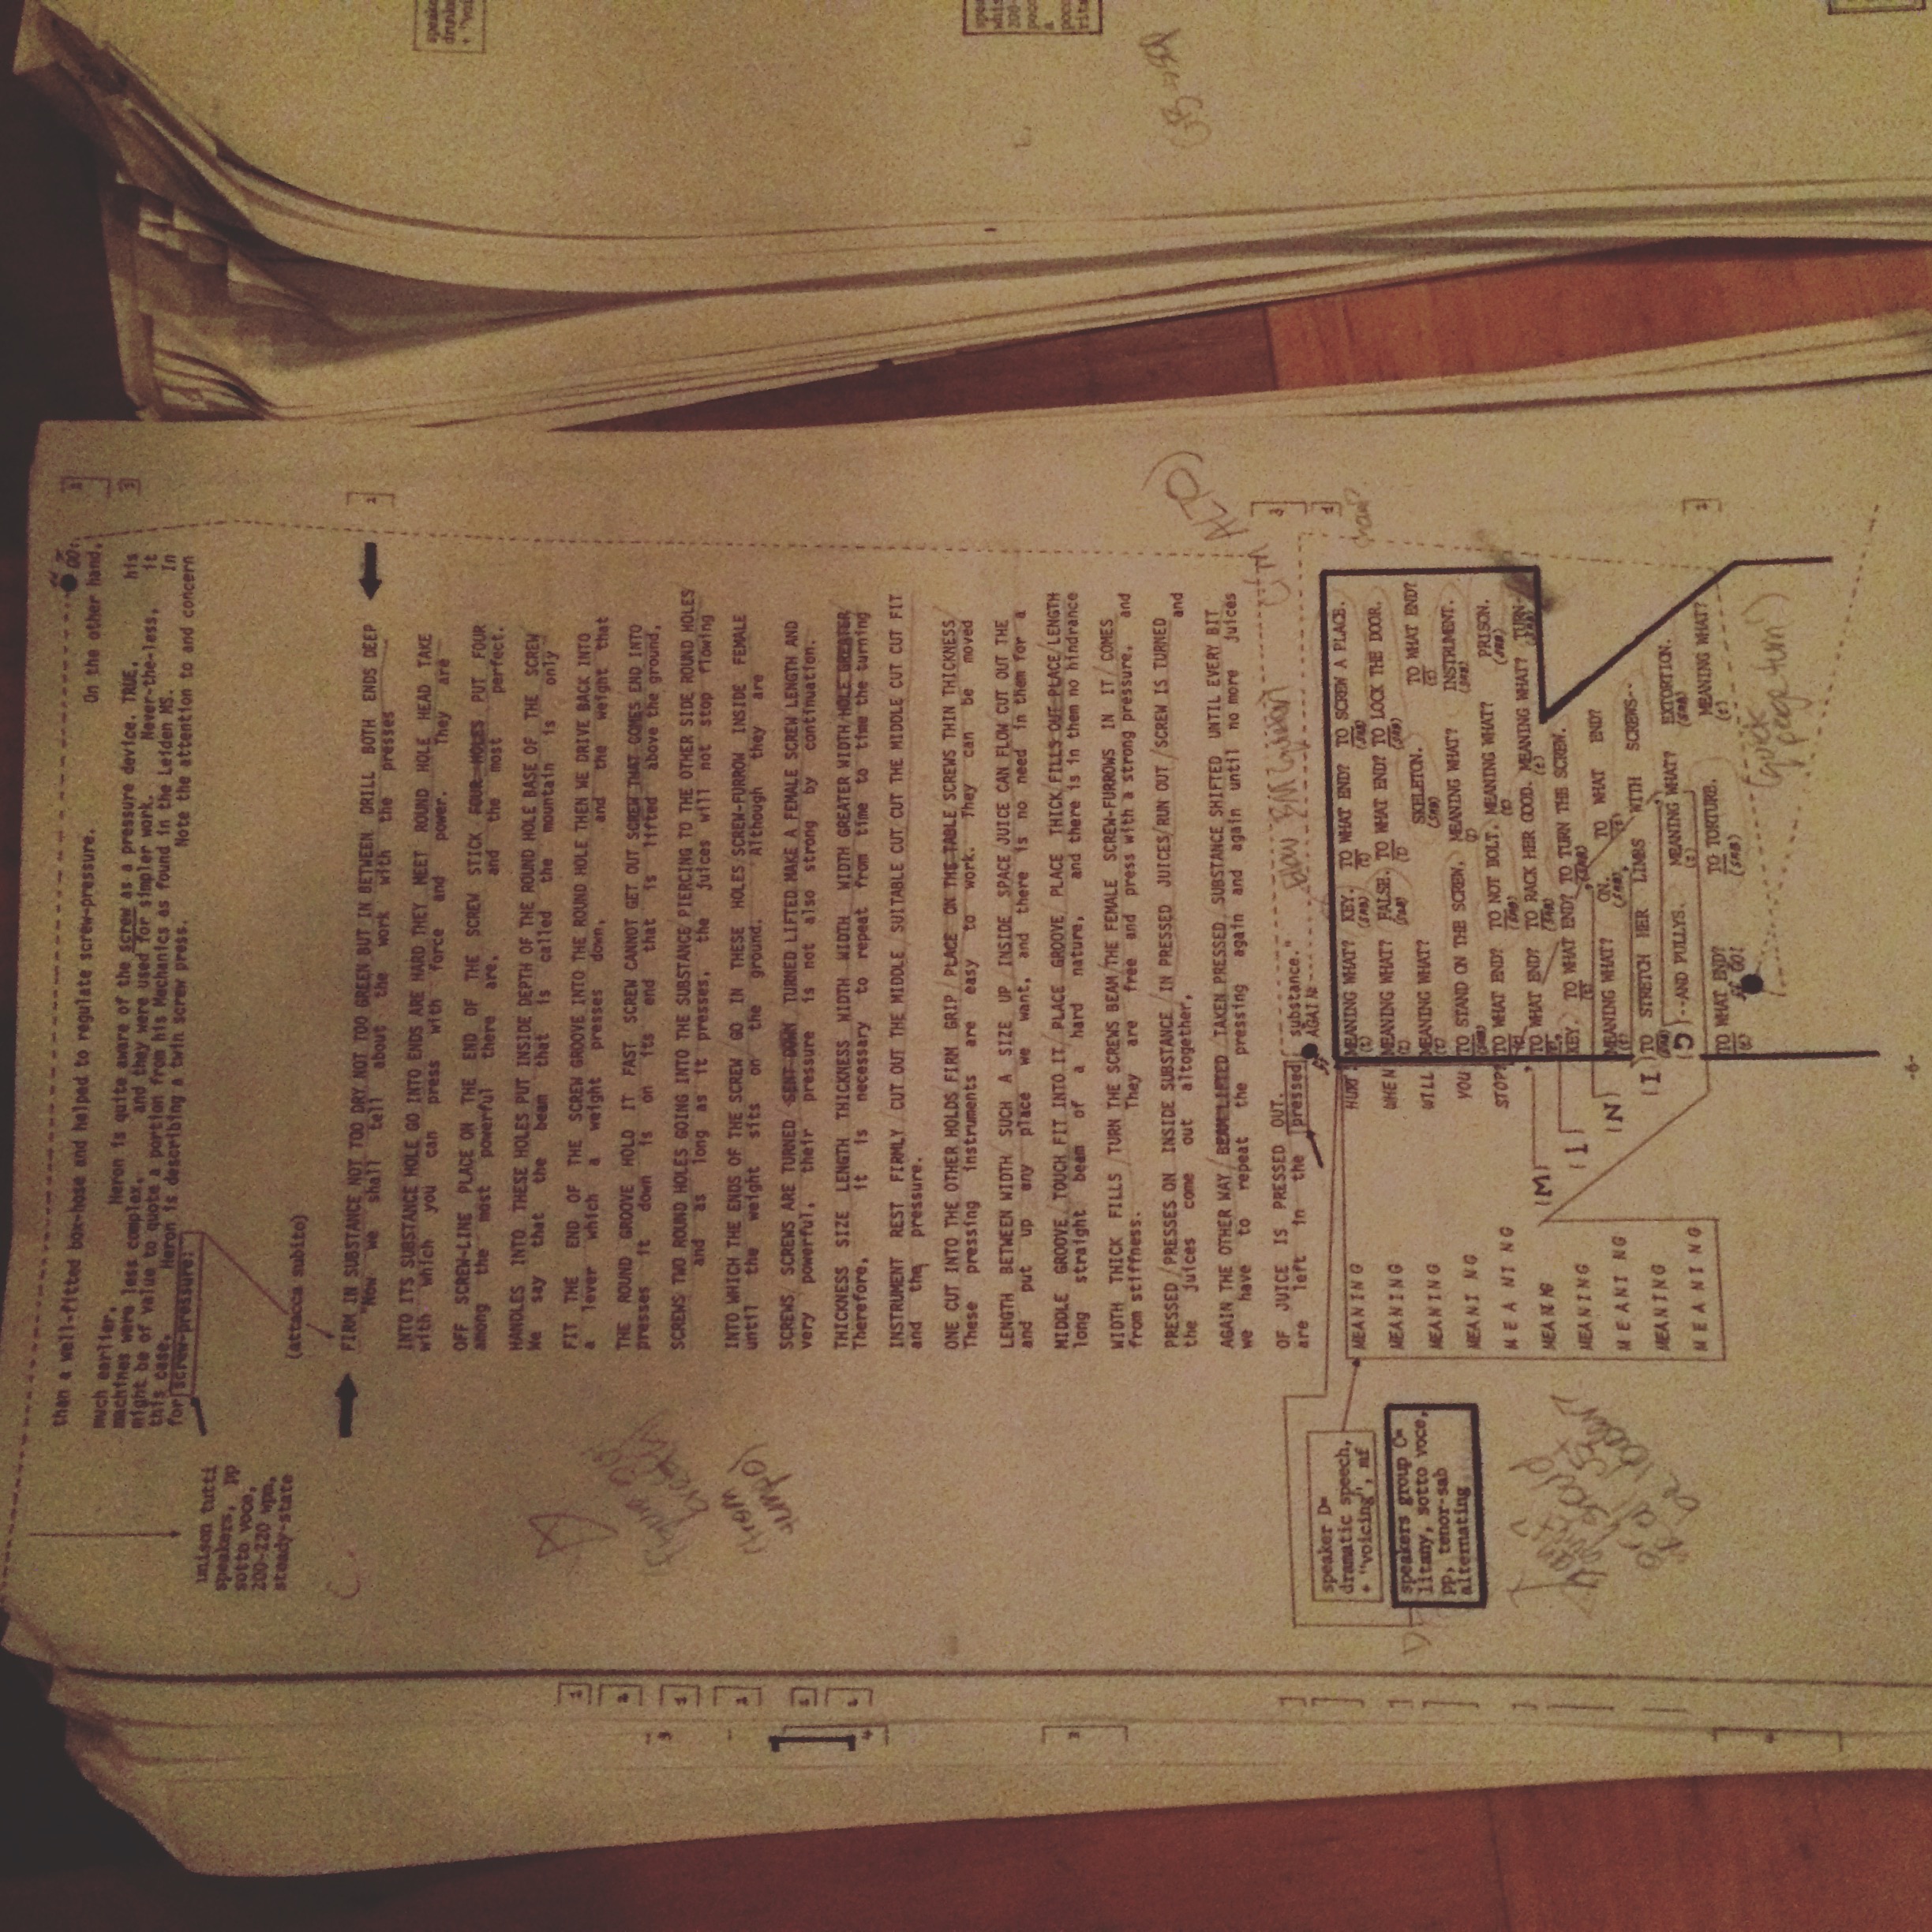 than a well-fitted box-hose and helped to regulate screw-pressure. On the other hand,
GO!
much earlier, Heron is quite aware of the screw as a pressure device. TRUE, his
machines were less complex, and they were used for simpler work. Never-the-less, it
might be of value to quote a portion from his Mechanics as found in the Leiden MS. In
this case, Heron is describing a twin screw press. Note the attention to and concern
for screw-pressure:
unison tutti
speakers, pp
sotto voce,
200-220 wpm,
steady-state
(attacca subito)
FIRM IN SUBSTANCE NOT TOO DRY NOT TOO GREEN BUT IN BETWEEN DRILL BOTH ENDS DEEP
"Now we shall tell about the work with the presses
INTO ITS SUBSTANCE HOLE GO INTO ENDS ARE HARD THEY MEET ROUND HOLE HEAD TAKE
with which you can press with force and power. They are
OFF SCREW-LINE PLACE ON THE END OF THE SCREW STICK FOUR HOLES PUT FOUR
among the most powerful there are, and the most perfect.
HANDLES INTO THESE HOLES PUT INSIDE DEPTH OF THE ROUND HOLE BASE OF THE SCREW
We say that the beam that is called the mountain is only
FIT THE END OF THE SCREW GROOVE INTO THE ROUND HOLE THEN WE DRIVE BACK INTO
a lever which a weight presses down, and the weight that
THE ROUND GROOVE HOLD IT FAST SCREW CANNOT GET OUT SCREW THAT COMES END INTO
presses it down is on its end that is lifted above the ground,
SCREWS TWO ROUND HOLES GOING INTO THE SUBSTANCE/PIERCING TO THE OTHER SIDE ROUND HOLES
and as long as it presses, the juices will not stop flowing
INTO WHICH THE ENDS OF THE SCREW/GO IN THESE HOLES/SCREW-FURROW INSIDE FEMALE
until the weight sits on the ground. Although they are
SCREWS, SCREWS ARE TURNED/SENT DOWN/TURNED LIFTED MAKE A FEMALE SCREW LENGTH AND
very powerful, their pressure is not also strong by continuation.
THICKNESS SIZE LENGTH THICKNESS WIDTH WIDTH WIDTH GREATER WIDTH HOLE GREATER
Therefore, it is necessary to repeat from time to time the turning
INSTRUMENT REST FIRMLY/CUT OUT THE MIDDLE/SUITABLE CUT CUT THE MIDDLE CUT CUT FIT
and the pressure.
ONE CUT INTO THE OTHER HOLDS FIRM GRIP/PLACE ON THE TABLE SCREWS THIN THICKNESS
These pressing instruments are easy to work. They can be moved
LENGTH BETWEEN WIDTH SUCH A SIZE UP/INSIDE SPACE JUICE CAN FLOW CUT OUT THE
and put up any place we want, and there is no need in them for a
MIDDLE GROOVE/TOUCH FIT INTO IT/PLACE GROOVE/PLACE THICK/FILLS OUT PLACE/LENGTH
long straight beam of a hard nature, and there is in them no hindrance
WIDTH THICK FILLS/TURN THE SCREWS BEAM/THE FEMALE SCREW-FURROWS IN IT/COMES
from stiffness. They are free and press with a strong pressure, and
PRESSED/PRESSES ON INSIDE SUBSTANCE/IN PRESSED JUICES/RUN OUT/SCREW IS TURNED
the juices come out altogether, and
AGAIN THE OTHER WAY/BEAM LIFTED/TAKEN PRESSED/SUBSTANCE SHIFTED UNTIL EVERY BIT
we have to repeat the pressing again and again until no more juices
OF JUICE IS PRESSED OUT.
are left in the pressed substance."
AGAIN
speaker D=
dramatic speech,
+ "voicing", mf
speakers group C=
litany, sotto voce,
pp, tenor-sab
alternating
MEANING
MEANING
MEANING
MEANING
MEANING
MEANING
MEANING
MEANING
MEANING
MEANING
HURT MEANING WHAT? KEY. TO WHAT END? TO SCREW A PLACE.
WHEN MEANING WHAT? FALSE. TO WHAT END? TO LOCK THE DOOR.
WILL MEANING WHAT? SKELETON. TO WHAT END?
YOU TO STAND ON THE SCREW. MEANING WHAT? INSTRUMENT.
STOP? TO WHAT END? TO NOT BOLT. MEANING WHAT? PRISON.
TO WHAT END? TO RACK HER GOOD. MEANING WHAT? TURN-
KEY. TO WHAT END? TO TURN THE SCREW.
MEANING WHAT? ON. TO WHAT END?
TO STRETCH HER LIMBS WITH SCREWS--
--AND PULLYS. MEANING WHAT? EXTORTION.
TO WHAT END? TO TORTURE. MEANING WHAT?
GO!
(M)
(N)
(I)
(G)
(quick page turn)
-6-